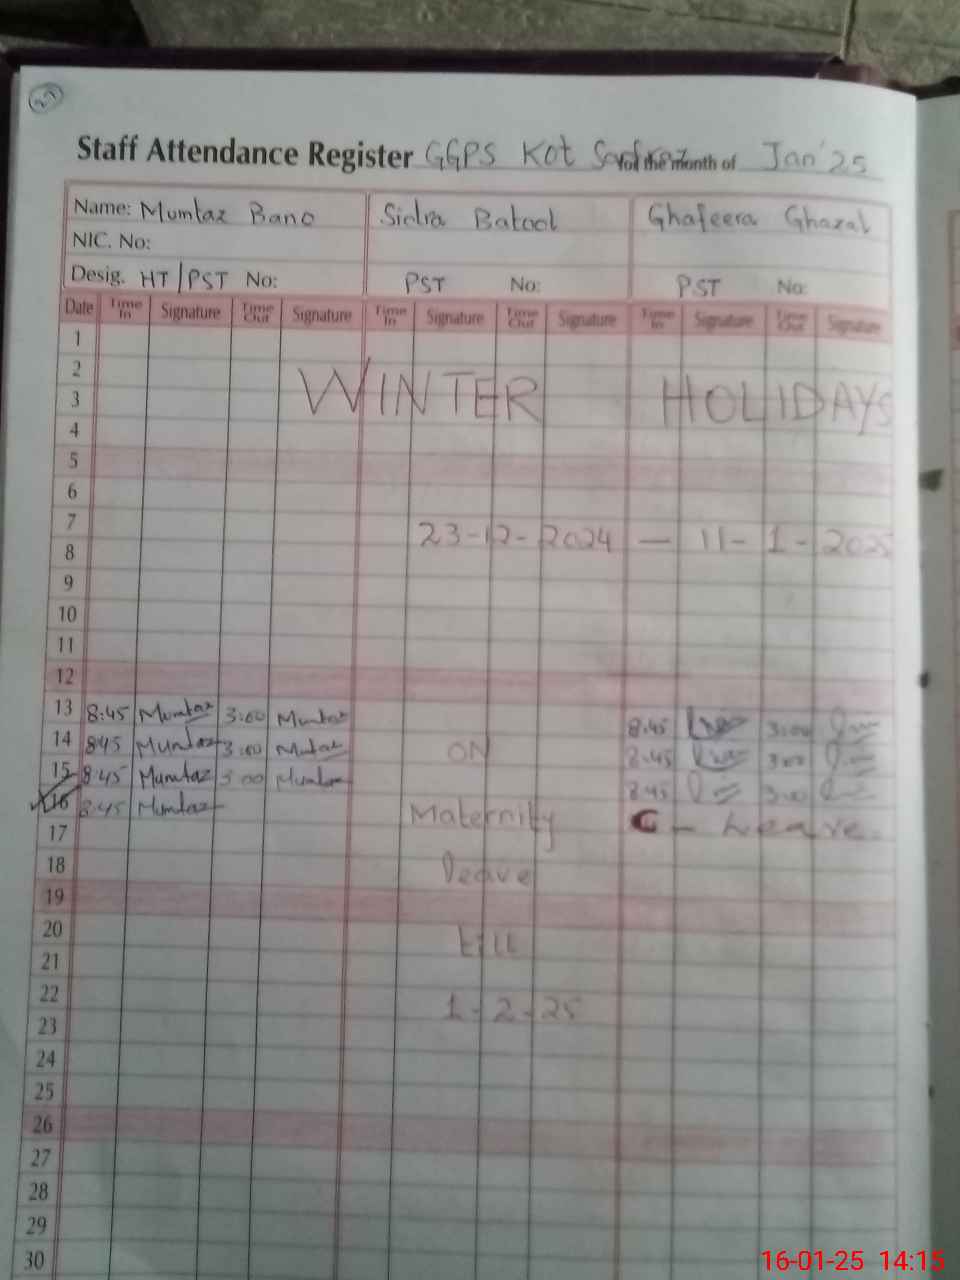 Staff Attendance Register GGPS Kot for the month of Jan'25
Name: Mumtaz Bano Sidra Batool Ghafeera Ghazal
NIC. No:
Desig. HT/PST No: PST No: PST No:
Date Time In Signature Time Out Signature Time In Signature Time Out Signature Time In Signature Time Out Signature
1
2
3 WINTER HOLIDAYS
4
5
6
7 23-12-2024 — 11-1-2025
8
9
10
11
12
13 8:45 Mumtaz 3:00 Mumtaz 8:45 3:00
14 8:45 Mumtaz 3:00 Mumtaz ON 8:45 3:00
15 8:45 Mumtaz 3:00 Mumtaz 8:45 3:00
16 8:45 Mumtaz Maternity C - Leave.
17
18 leave
19
20 till
21
22 1-2-25
23
24
25
26
27
28
29
30
16-01-25 14:15